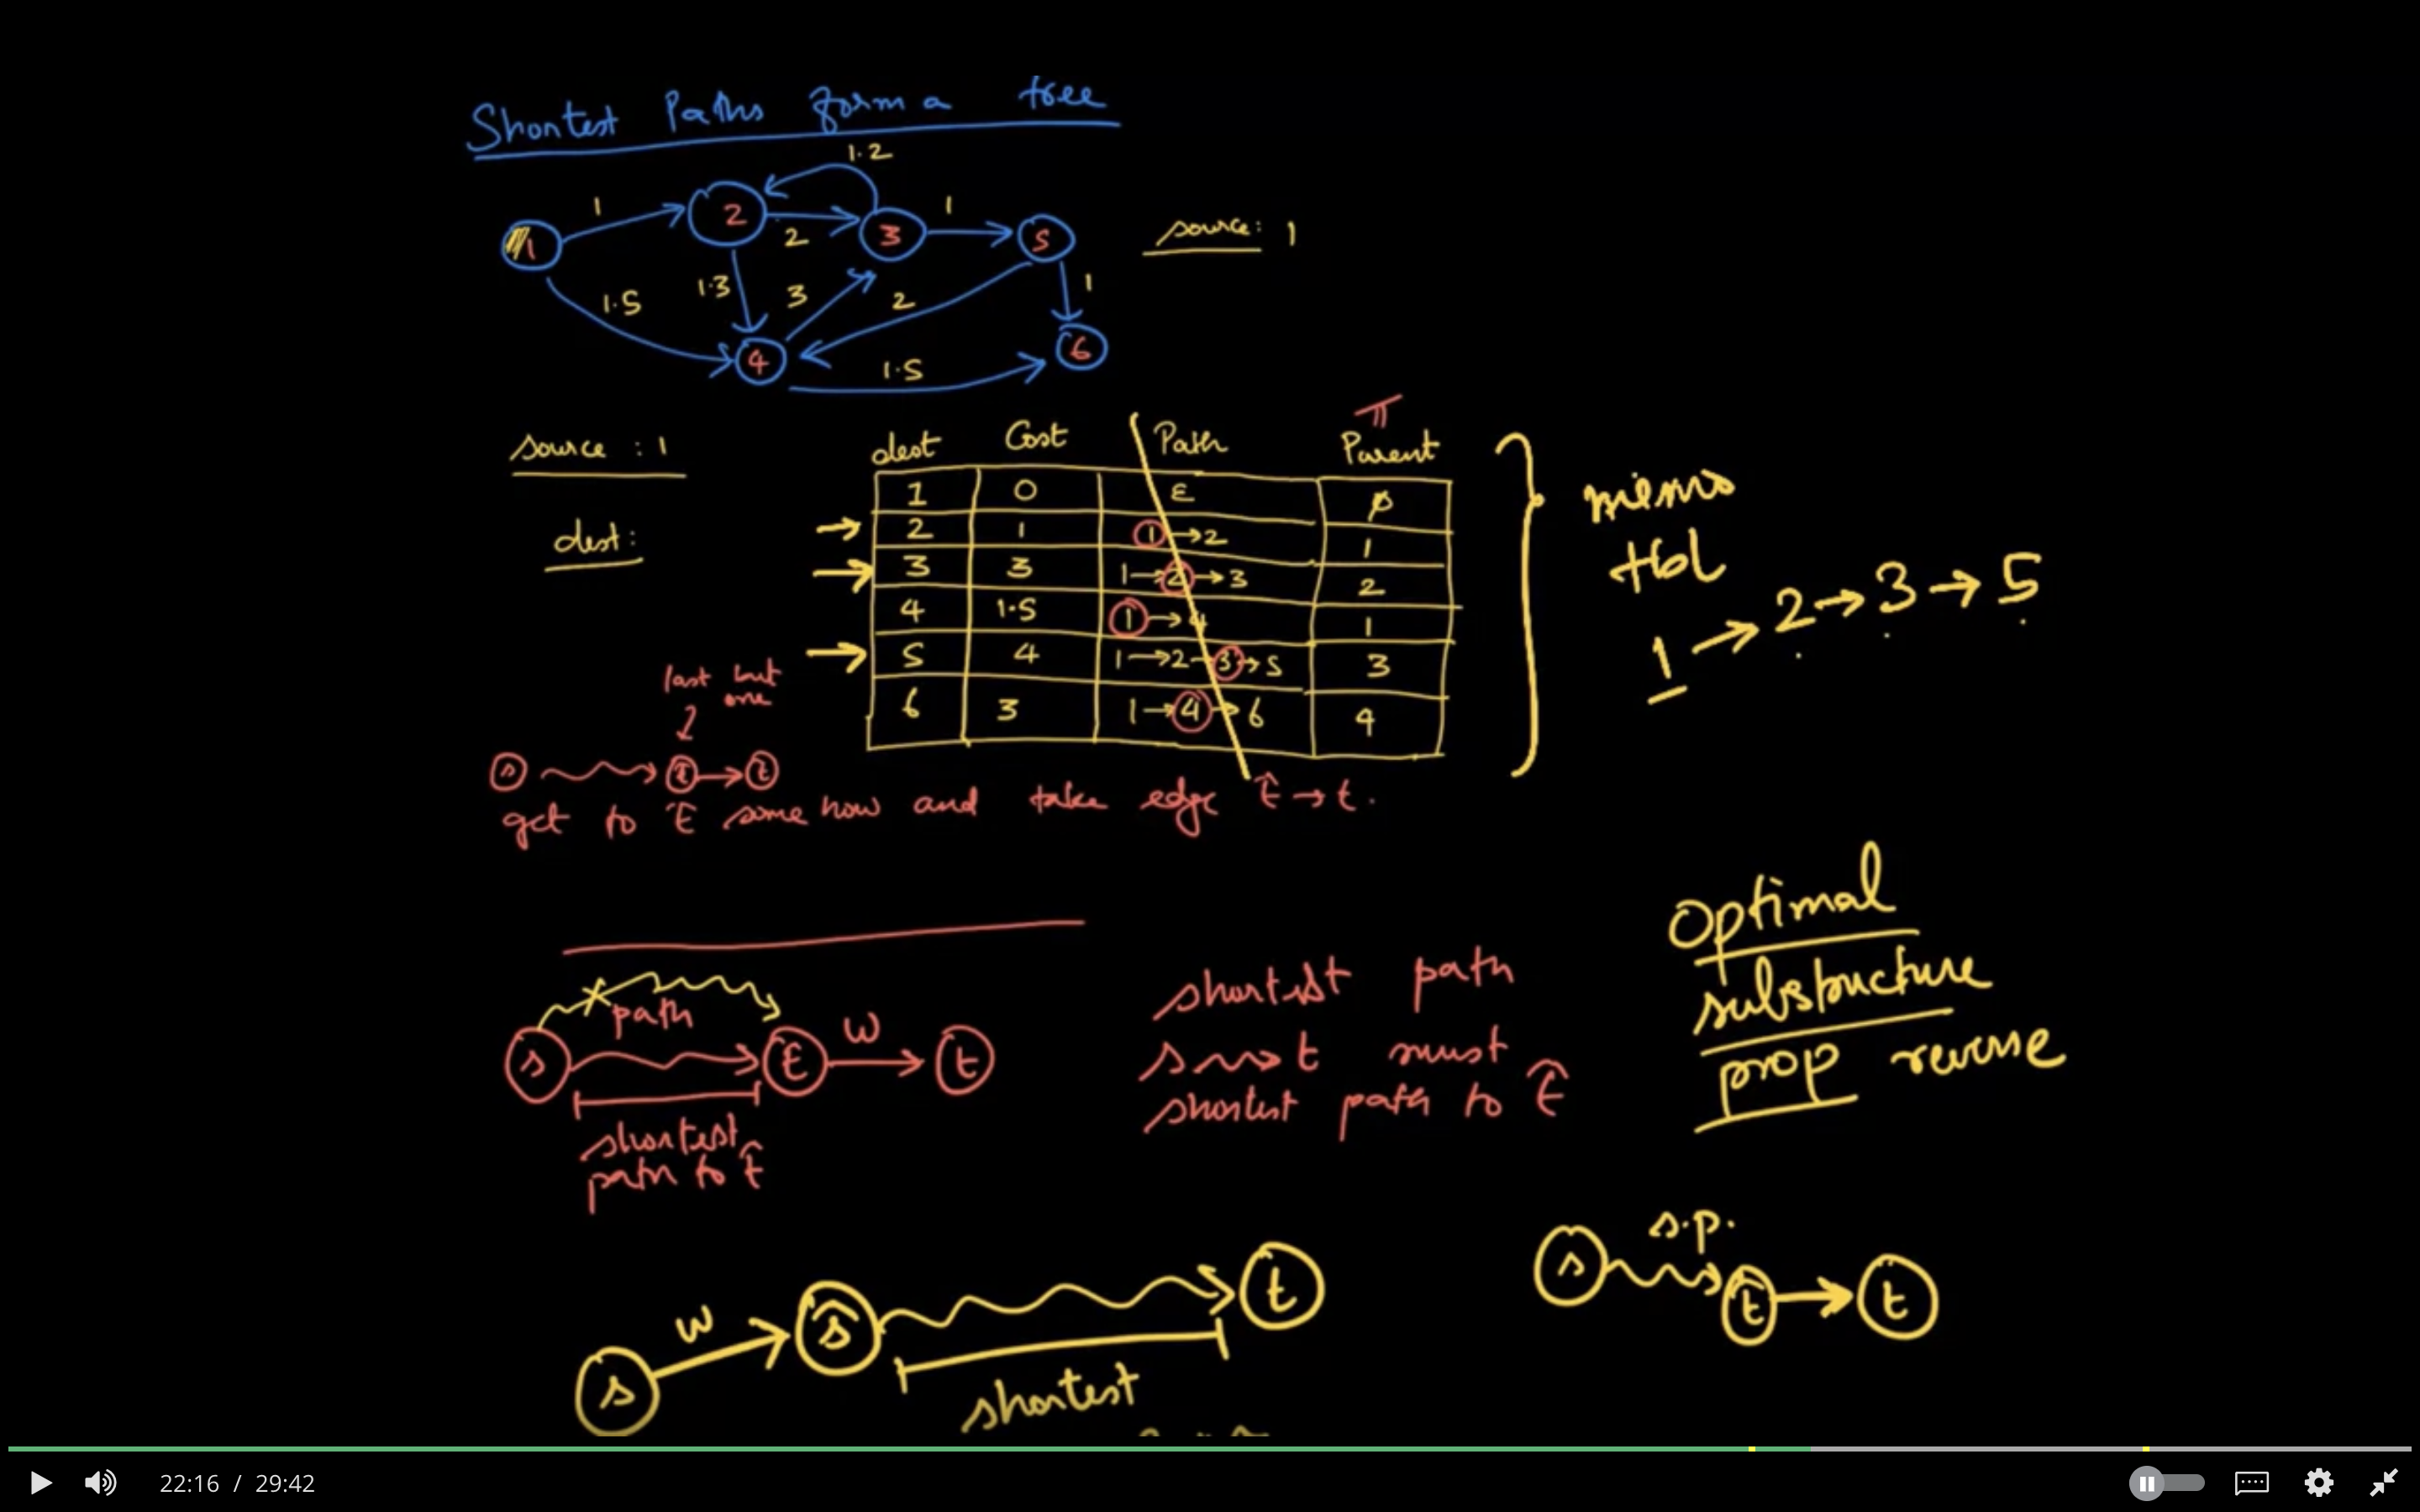 Shortest Paths form a tree
1.2
1
2
1
1
2
3
5
source: 1
1.5
1.3
3
2
1
4
6
1.5
π
source : 1
dest
Cost
Path
Parent
1 0 ε ϕ
dest:
2 1 1→2 1
3 3 1→2→3 2
4 1.5 1→4 1
5 4 1→2→3→5 3
6 3 1→4→6 4
memo
tbl
1→2→3→5
last but
one
s t̂→t
get to t̂ some how and take edge t̂→t.
path
s t̂ w t
shortest
path to t̂
shortest path
s⇝t must
shortest path to t̂
Optimal
substructure
prop reverse
s.p.
s t̂ t
s w ŝ t
shortest
22:16 / 29:42